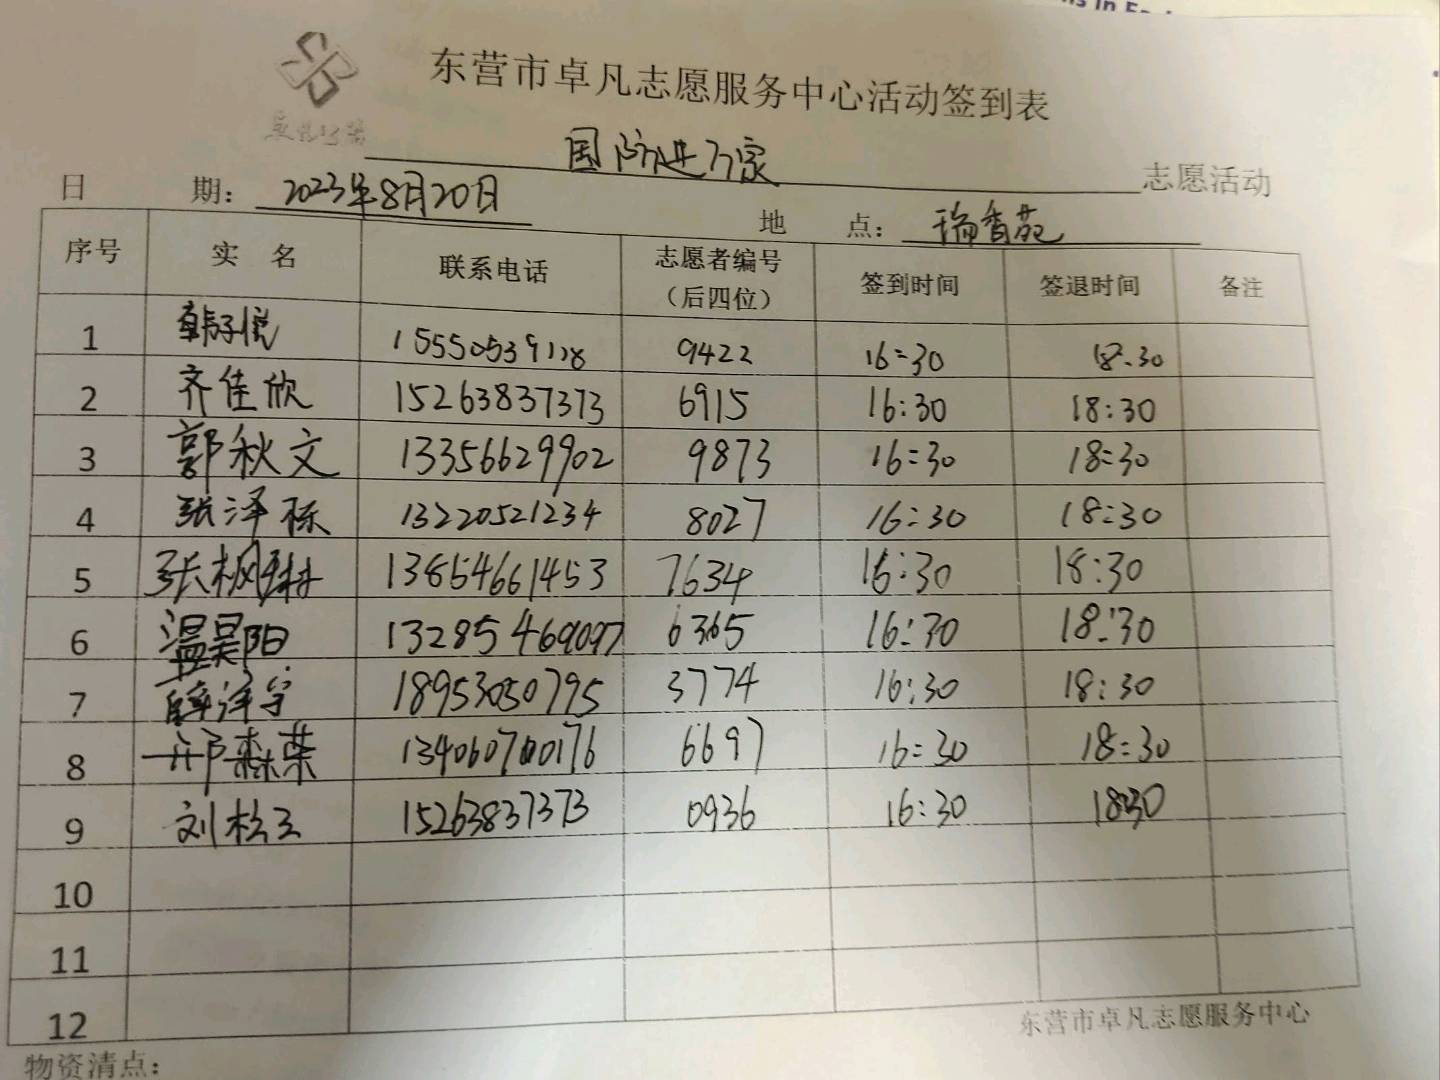 东营市卓凡志愿服务中心活动签到表
国防进万家 志愿活动
日 期： 2023年8月20日 地 点： 瑞香苑
序号 实 名 联系电话 志愿者编号（后四位） 签到时间 签退时间 备注
1 韩子悦 9422 16:30 18:30
2 齐佳欣 15263837373 6915 16:30 18:30
3 郭秋文 13356629902 9873 16:30 18:30
4 张泽栋 13220521234 8027 16:30 18:30
5 张枫琳 13854661453 7634 16:30 18:30
6 温昊阳 13285469097 6365 16:30 18:30
7 薛泽宇 18953050795 3774 16:30 18:30
8 邢森荣 6697 16:30 18:30
9 刘松玉 15263837373 0936 16:30 18:30
10
11
12
东营市卓凡志愿服务中心
物资清点：